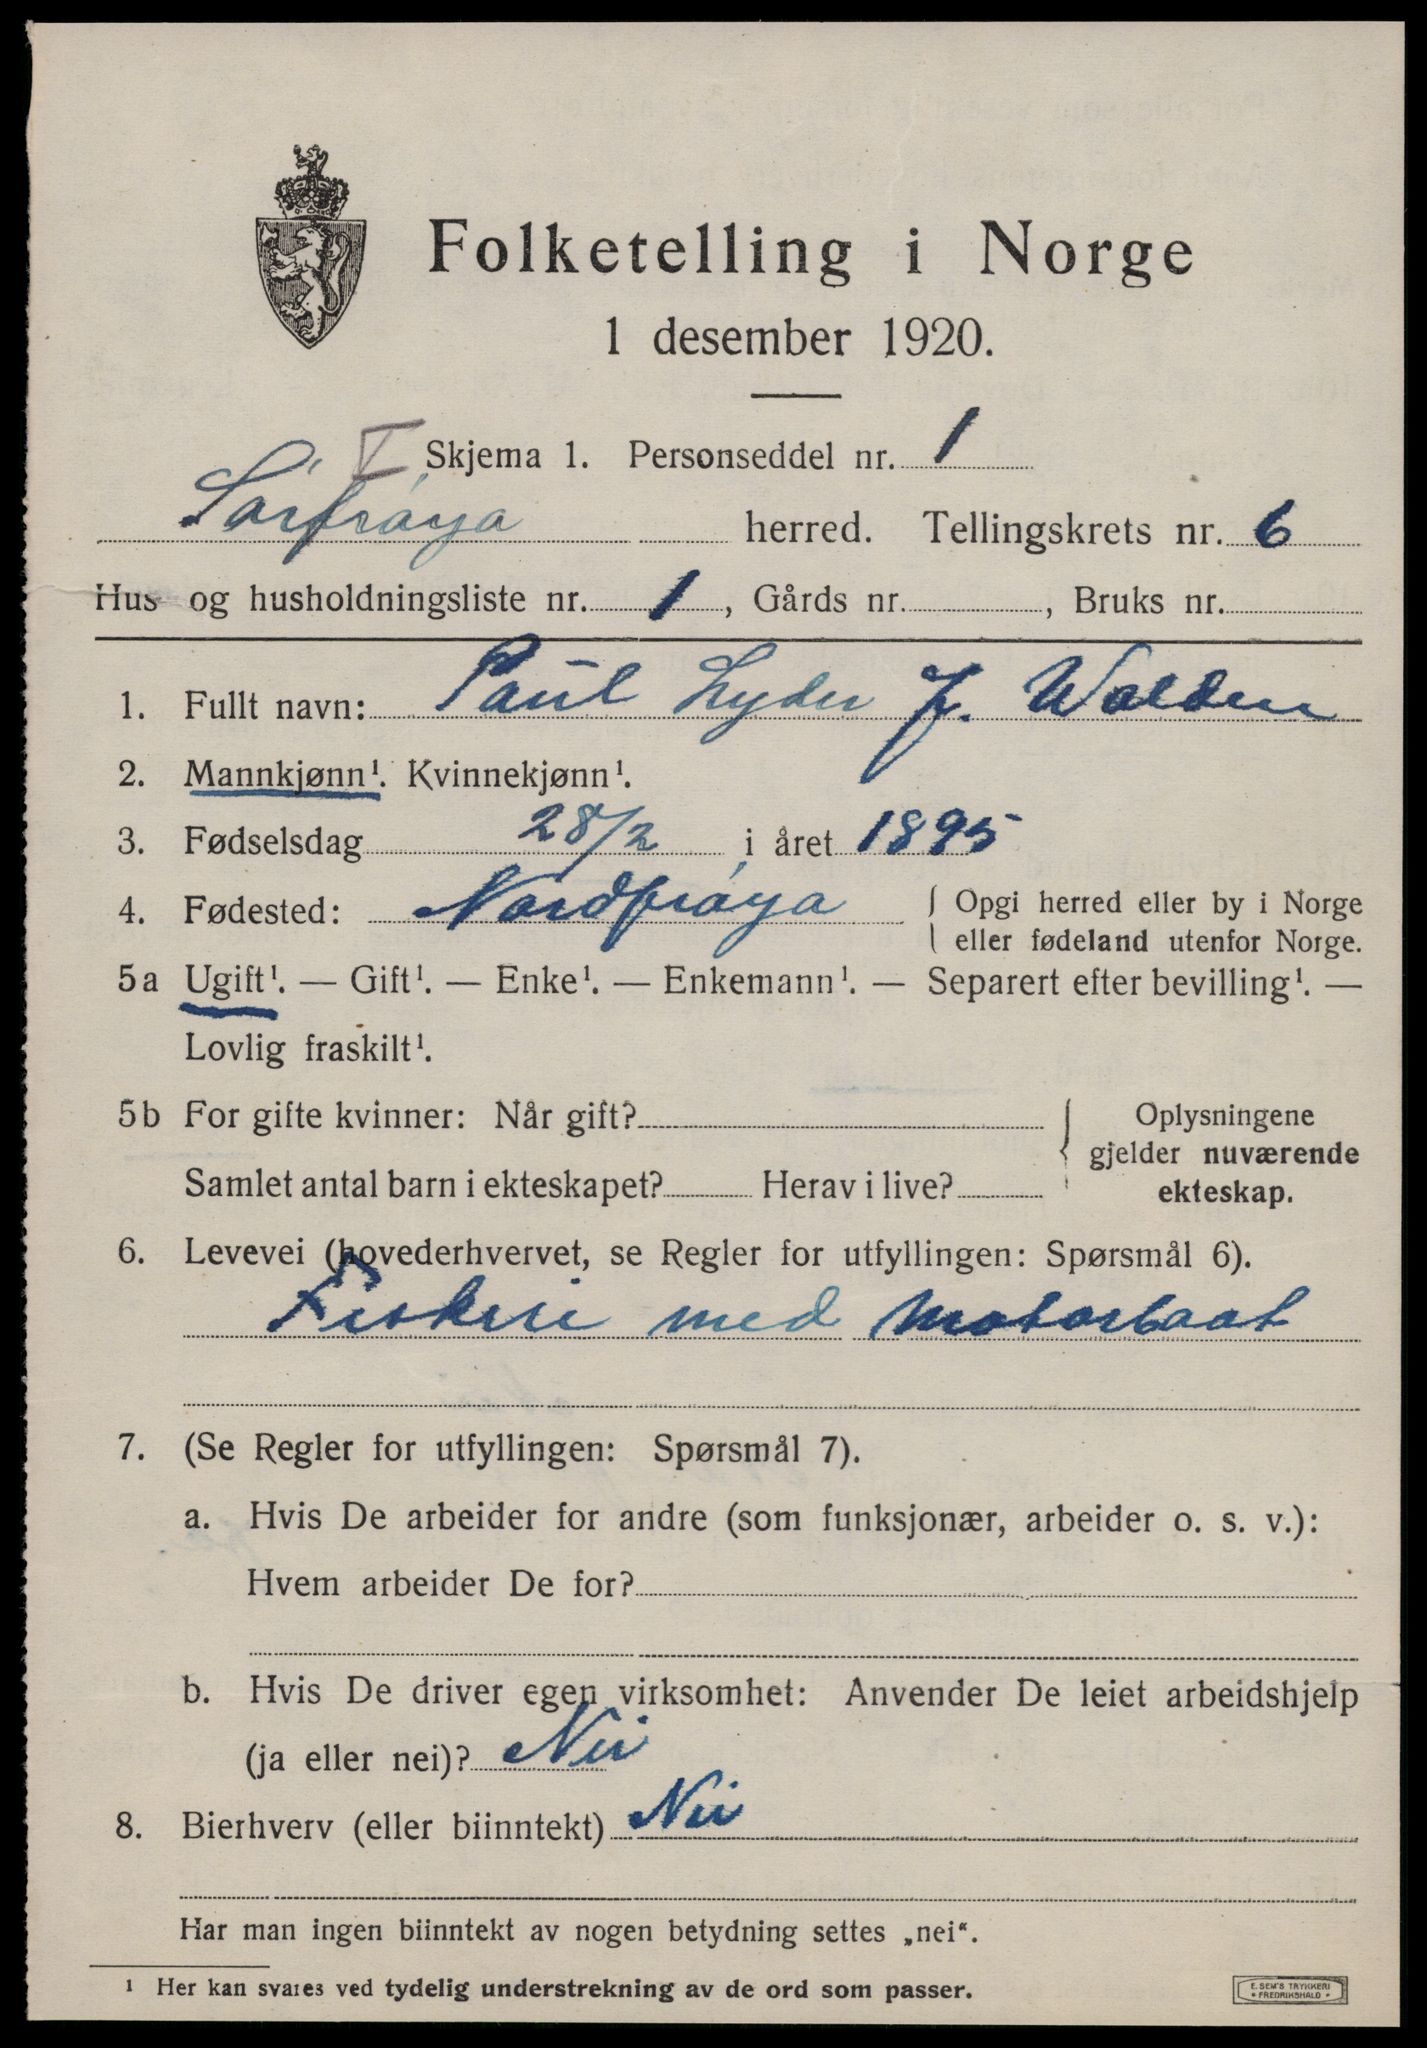 Folketelling i Norge
1 desember 1920.
I Skjema 1. Personseddel nr. 1
Sørfrøya herred. Tellingskrets nr. 6
Hus- og husholdningsliste nr. 1, Gårds nr. , Bruks nr.
1. Fullt navn: Paul Lyder J. Walden
2. Mannkjønn¹. Kvinnekjønn¹.
3. Fødselsdag 28/2 i året 1895
4. Fødested: Nordfrøya { Opgi herred eller by i Norge
eller fødeland utenfor Norge.
5a Ugift¹. — Gift¹. — Enke¹. — Enkemann¹. — Separert efter bevilling¹. —
Lovlig fraskilt¹.
5b For gifte kvinner: Når gift? { Oplysningene
gjelder nuværende
Samlet antal barn i ekteskapet? Herav i live? ekteskap.
6. Levevei (hovederhvervet, se Regler for utfyllingen: Spørsmål 6).
Fiskeri med Motorbaat
7. (Se Regler for utfyllingen: Spørsmål 7).
a. Hvis De arbeider for andre (som funksjonær, arbeider o. s. v.):
Hvem arbeider De for?
b. Hvis De driver egen virksomhet: Anvender De leiet arbeidshjelp
(ja eller nei)? Nei
8. Bierhverv (eller biinntekt) Nei
Har man ingen biinntekt av nogen betydning settes „nei“.
¹ Her kan svares ved tydelig understrekning av de ord som passer.
E. SEM'S TRYKKERI
FREDRIKSHALD